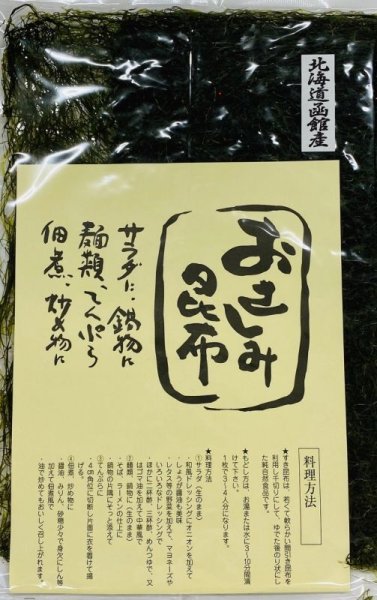 北海道函館産
おさしみ
昆布
サラダに、鍋物に
麺類、てんぷら
佃煮、炒め物に
料理方法
★すき昆布は、若くて軟らかい間引き昆布を
利用し千切りにして、ゆでた後のり状にし
た純自然食品です。
★もどし方は、お湯または水に3~10分間漬
けて下さい。
1枚で3~4人分になります。
★料理方法
①サラダ(生のまま)
・和風ドレッシングにオニオンを加えて
しょうが醤油も美味
・レタス等の野菜を加えて、マヨネーズや
いろいろなドレッシングで
ほかに二杯酢、三杯酢、めんつゆで、又
はゴマ油を加えて中華風で
②麺類、鍋物に(生のまま)
・そば、ラーメンの仕上に
・鍋物の片隅にそっと添えて
③てんぷらに
・4㎝角位に切断し片面に衣を着けて揚
げる。
④佃煮、炒め物に
・醤油、みりん、砂糖少々で身欠にしん等
加えて佃煮風で
・油で炒めてもおいしく召し上がれます。